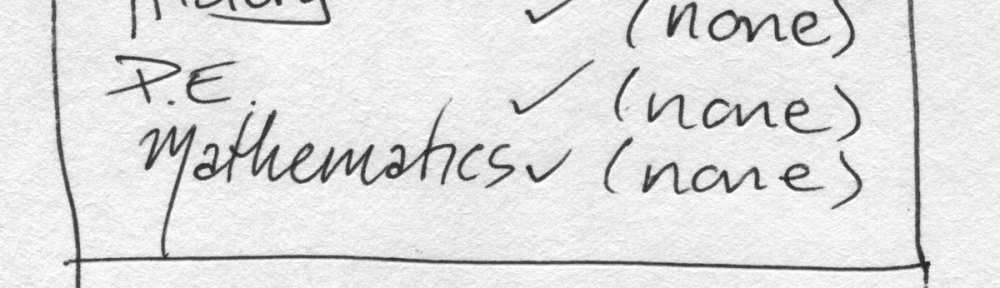 ✓ (none)
P.E. ✓ (none)
Mathematics ✓ (none)